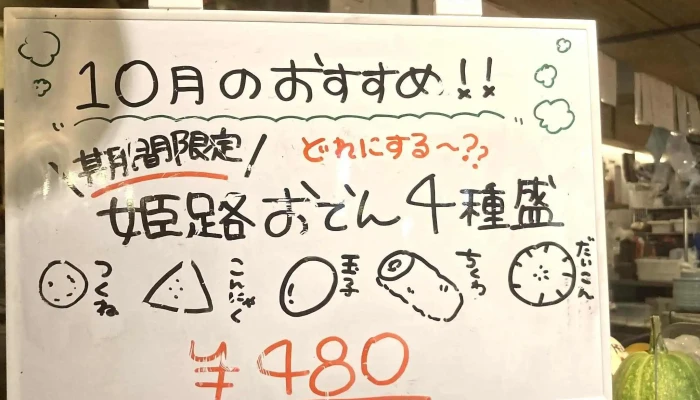 10月のおすすめ!!
期間限定
どれにする〜??
姫路おでん4種盛
つくね
こんにゃく
玉子
ちくわ
だいこん
¥480